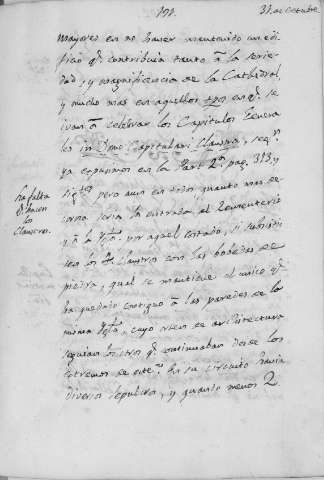 171.
31. de Octubre
mayores en no haver mantenido un edi-
ficio q.e contribuia tanto â la serie-
dad, y magnificencia de la Cathedral,
y mucho mas en aquellos tpos en q.e se
ivan â celebrar los Capitulos Genera
les in Capitulari Claustro, seg.n
ya expusimos en la Part. 2.a pag. 313, y
sig.tes pero aun en dos quanto mas de-
corosa seria la entrada al Cementerio
y â la Ygl.a por aquel costado, si subsisti-
esen los Claustros con las bobedas de
piedra, qual se mantiene el unico q.e
ha quedado contiguo â las paredes de la
misma Ygl.a, cuyo orden de architectura
seguian los otros q.e continuaban desde los
estremos de este. En su circuito havia
diversos sepulcros, y quanto menos 2
Ha falta
q.e hacen
los
Claustros.